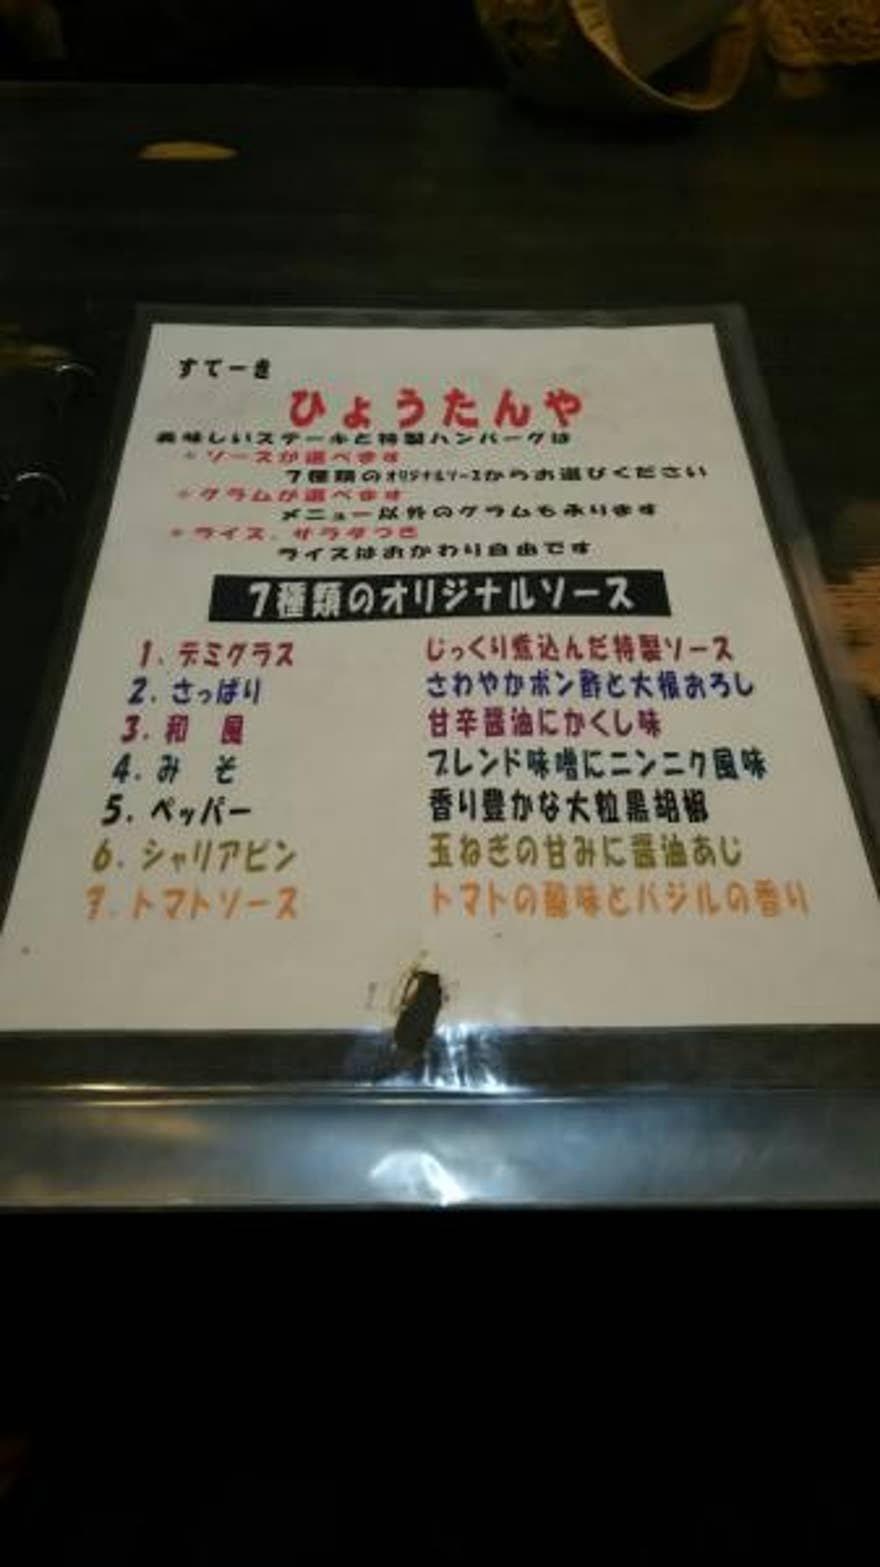 すてーき
ひょうたんや
美味しいステーキと特製ハンバーグは
*ソースが選べます
7種類のオリジナルソースからお選びください
*グラムが選べます
メニュー以外のグラムも承ります
*ライス、サラダつき
ライスはおかわり自由です
7種類のオリジナルソース
1. デミグラス じっくり煮込んだ特製ソース
2. さっぱり さわやかポン酢と大根おろし
3. 和 風 甘辛醤油にかくし味
4. み そ ブレンド味噌にニンニク風味
5. ペッパー 香り豊かな大粒黒胡椒
6. シャリアピン 玉ねぎの甘みに醤油あじ
7. トマトソース トマトの酸味とバジルの香り